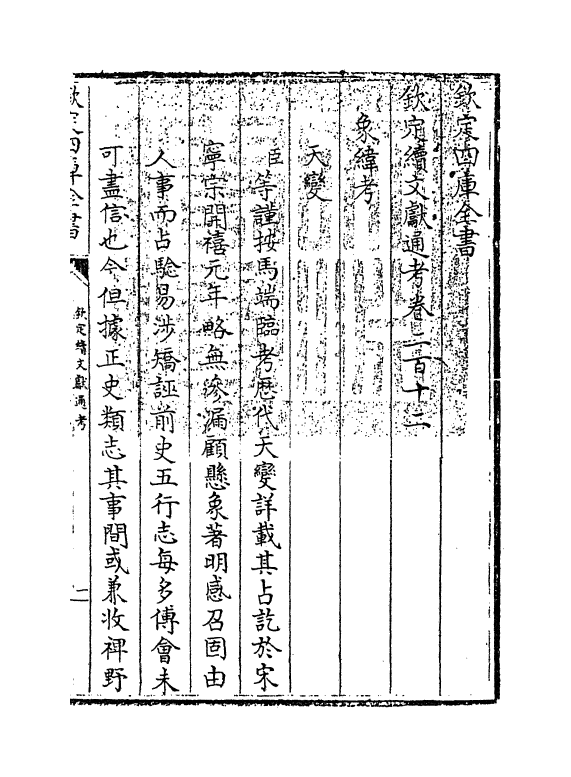 欽定四庫全書
欽定續文獻通考卷二百十二
象緯考
天變
臣等謹按馬端臨考歷代天變詳載其占訖於宋
寧宗開禧元年略無滲漏顧懸象著明感召固由
人事而占驗易涉矯誣前史五行志每多傅會未
可盡信也今但據正史類志其事間或兼收稗野
欽定四庫全書
欽定續文獻通考
一